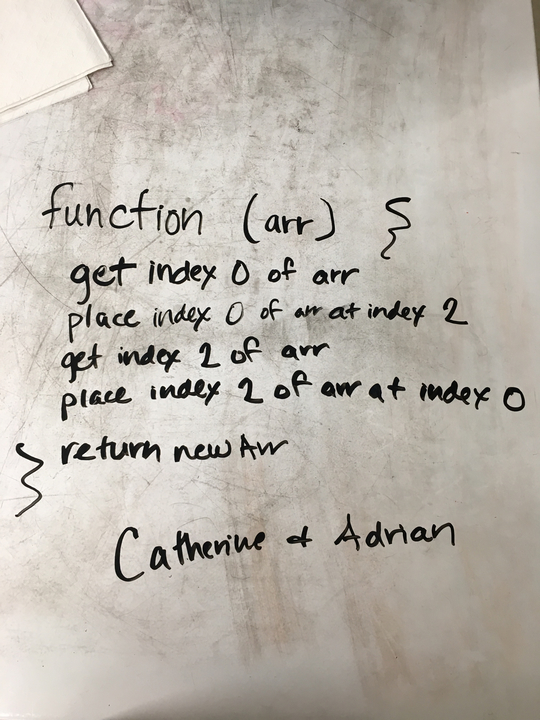 function (arr) {
get index 0 of arr
place index 0 of arr at index 2
get index 2 of arr
place index 2 of arr at index 0
return newArr
}
Catherine & Adrian